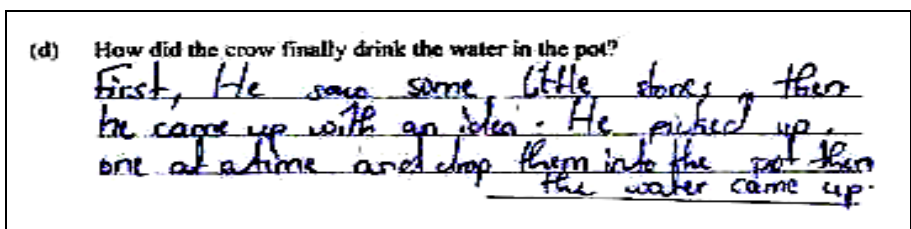 (d) How did the crow finally drink the water in the pot?
First, He saw some little stones, then
he came up with an idea. He picked up
one at a time and drop them into the pot then
the water came up.